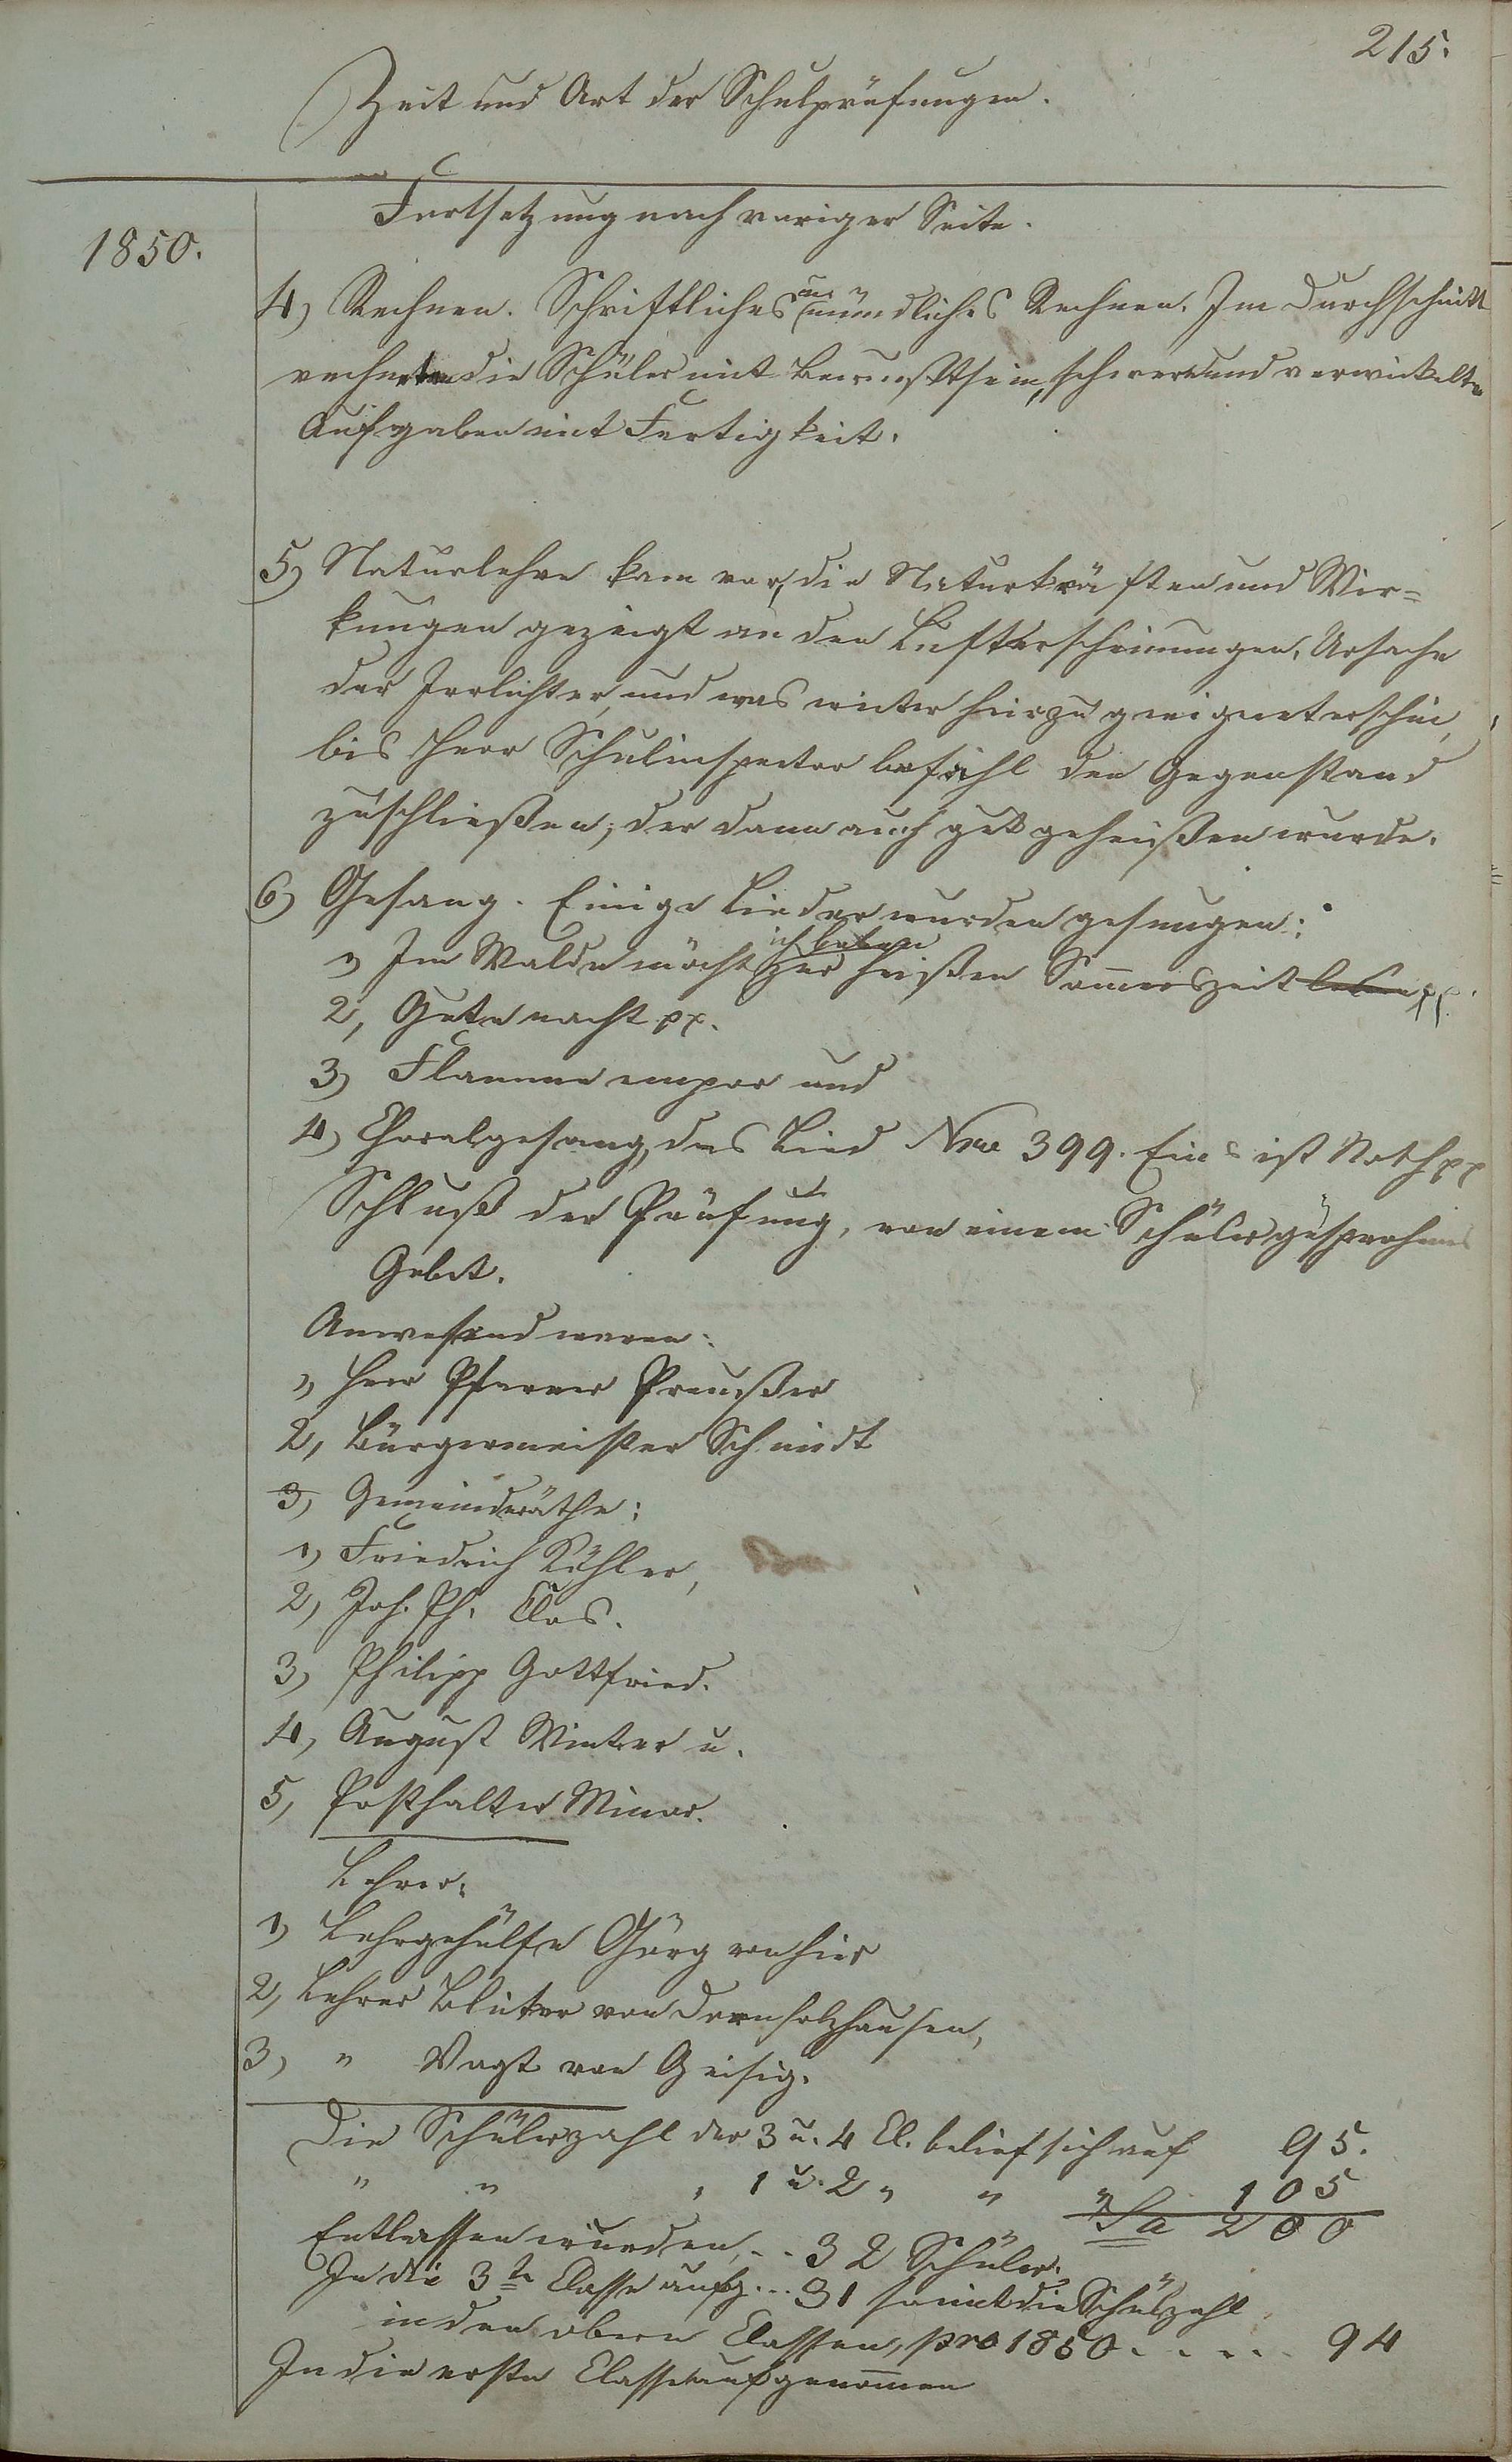 215.
Zeit und Art der Schulprüfungen.
Fortsetzung nach voriger Seite.
1850.
4) Rechnen. Schriftliches und mündliches Rechnen. Im Durchschnitt
rechneten die Schüler mit Bewußtsein, schwere und verwickelte
Aufgaben mit Fertigkeit.
5) Naturlehre kam vor, die Naturkräften und Wir=
kungen gezeigt an den Lufterscheinungen, Ursache
der Irrlichter, und was weiter hierzu geeignet erschien,
bis Herr Schulinspector befahl den Gegenstand
zuschließen; der dann auch gut geheißen wurde.
6) Gesang. Einige Lieder wurden gesungen:
1) Im Walde möcht ich leben zur heißen Sommerszeit leben pp.
2, Gute nacht pp.
3) Flamme empor und
4) Choralgesang, das Lied Nro 399. Eins ist Noth pp
Schluß der Prüfung, von einem Schüler gesprochenes
Gebet.
Anwesend waren:
1) Herr Pfarrer Preußer
2, Bürgermeister Schmidt
3) Gemeinderäthe:
1) Friedrich Köhler,
2) Joh. Ph. Clos.
3) Philipp Gottfried.
4, August Winter u.
5, Posthalter Minor.
Lehrer:
1) Lehrgehülfe Görg von hier
2, Lehrer Bluter von Dornholzhausen,
3) " Vogt von Geisig.
Die Schülerzahl der 3 u. 4 Cl. belief sich auf 95.
" " " 1 u. 2 " " " 105
Sa 200
Entlassen wurden, .. 32 Schüler.
In die 3te Classe aufg... 31 somit die Schülzahl
in den obern Classen, pro 1850 . . . . . 94
In die erste Classe aufgenommen